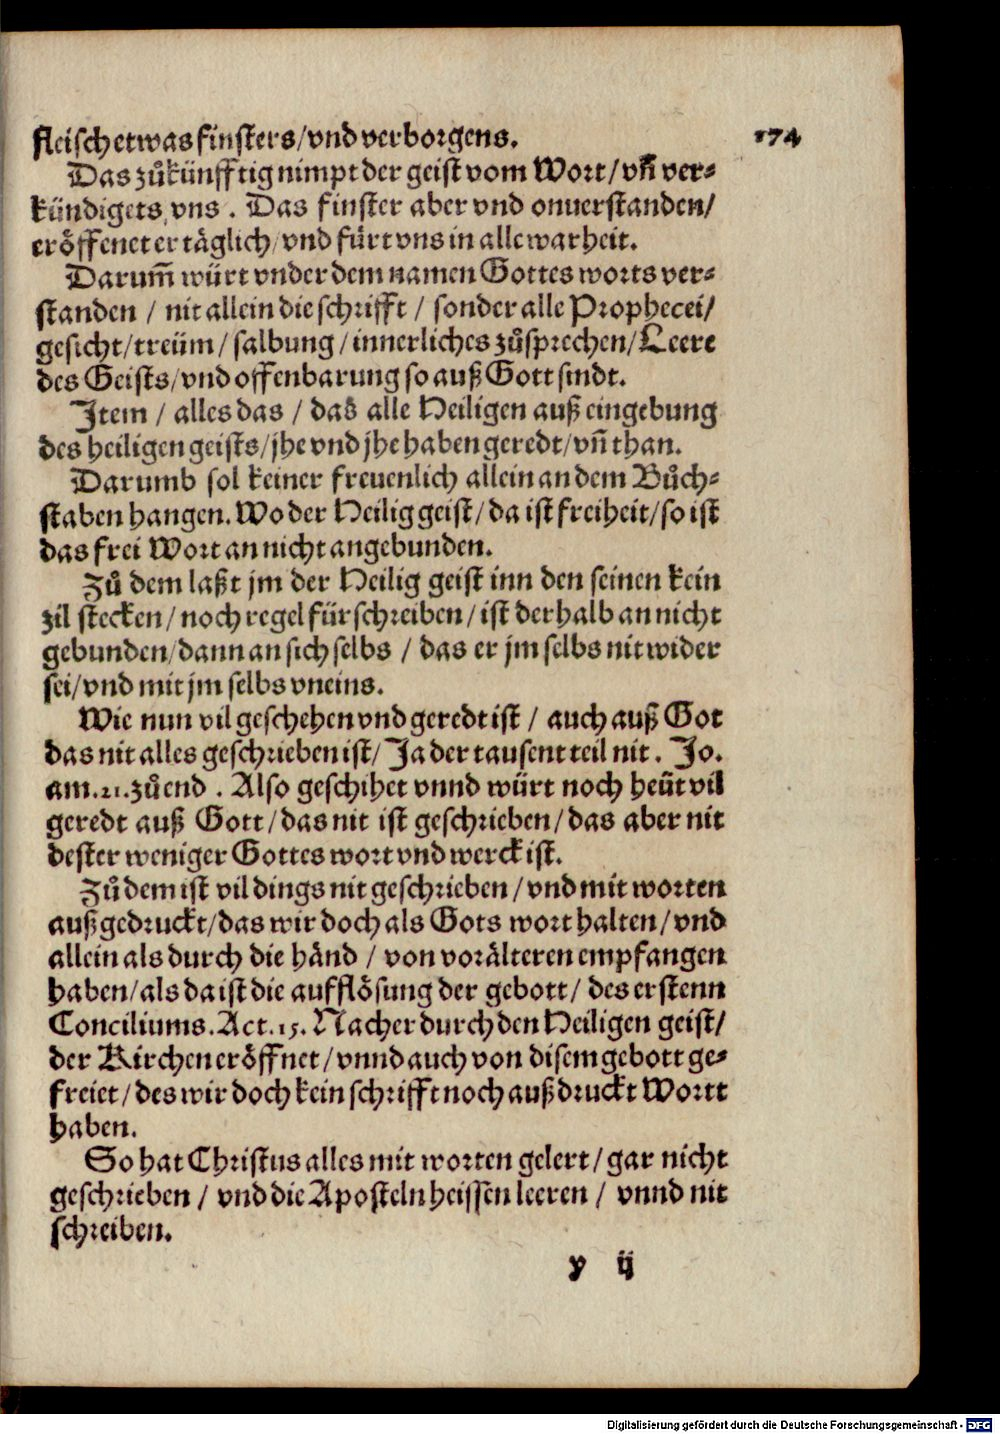 fleisch etwas finsters/vnd verborgens. 174
Das zůkünfftig nimpt der geist vom Wort/vñ ver-
kündigets, vns . Das finster aber vnd onuerstanden/
eröffenet er täglich/vnd fürt vns in alle warheit.
Darum̃ würt vnder dem namen Gottes worts ver-
standen / nit allein die schrifft / sonder alle Prophecei/
gesicht/treüm/salbung/innerliches zůsprechen/Leere
des Geists/vnd offenbarung so auß Gott sindt.
Item / alles das / das alle Heiligen auß eingebung
des heiligen geists/jhe vnd jhe haben geredt/vñ than.
Darumb sol keiner freuenlich allein an dem Bůch-
staben hangen. Wo der Heilig geist/da ist freiheit/so ist
das frei Wort an nicht angebunden.
Zů dem laßt jm der Heilig geist inn den seinen kein
zil stecken/noch regel fürschreiben/ist derhalb an nicht
gebunden/dann an sich selbs / das er jm selbs nit wider
sei/vnd mit jm selbs vneins.
Wie nun vil geschehen vnd geredt ist / auch auß Got
das nit alles geschrieben ist/Ja der tausent teil nit. Jo.
am.21.zů end . Also geschihet vnnd würt noch heüt vil
geredt auß Gott/das nit ist geschrieben/das aber nit
dester weniger Gottes wort vnd werck ist.
Zů dem ist vil dings nit geschrieben/vnd mit worten
außgedruckt/das wir doch als Gots wort halten/vnd
allein als durch die händ / von vorälteren empfangen
haben/als da ist die aufflösung der gebott/des erstenn
Conciliums. Act. 15. Nacher durch den Heiligen geist/
der Kirchen eröffnet/vnnd auch von disem gebott ge-
freiet/des wir doch kein schrifft noch außdruckt Wortt
haben.
So hat Christus alles mit worten gelert/gar nicht
geschrieben / vnd die Aposteln heissen leeren / vnnd nit
schreiben.
y ij
Digitalisierung gefördert durch die Deutsche Forschungsgemeinschaft - DFG